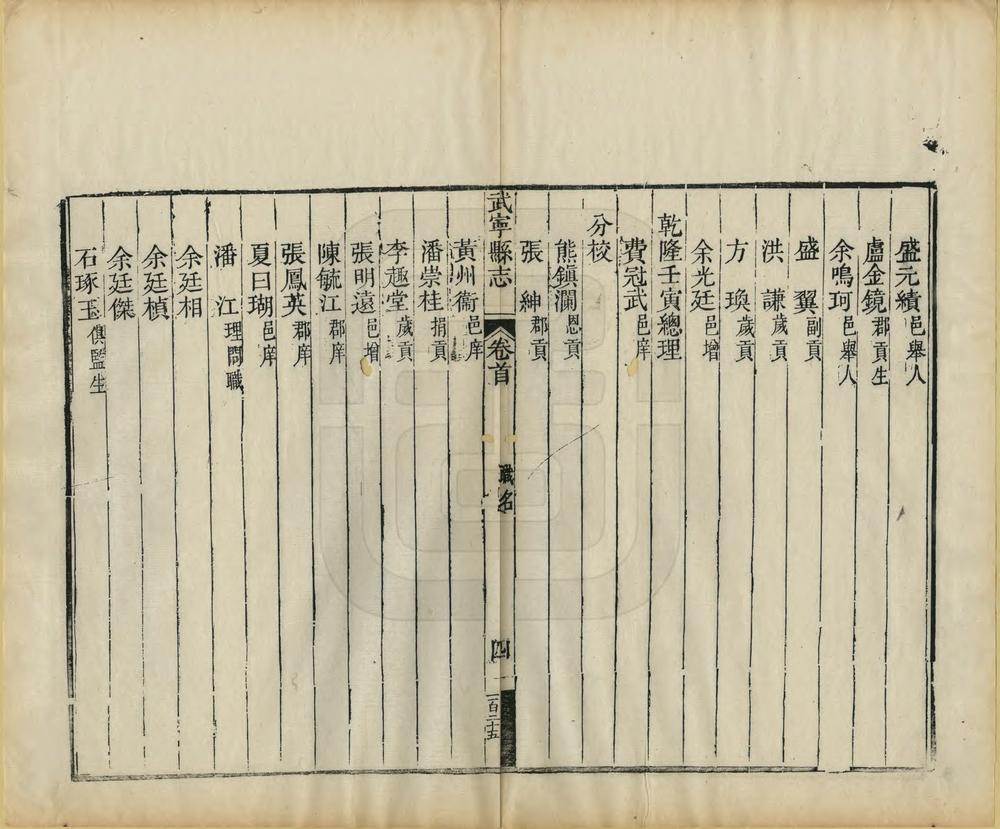 盛元績邑舉人
盧金鏡郡貢生
余鳴珂邑舉人
盛翼副貢
洪謙歲貢
方瑍歲貢
余光廷邑增
乾隆壬寅總理
費冠武邑庠
分校
熊鎮瀾恩貢
張紳郡貢
武寧縣志 卷首 職名 四 一百二十五
黃州衞邑庠
潘崇桂捐貢
李趣堂歲貢
張明遠邑增
陳毓江郡庠
張鳳英郡庠
夏曰瑚邑庠
潘江理問職
余廷相
余廷楨
余廷傑
石琢玉俱監生